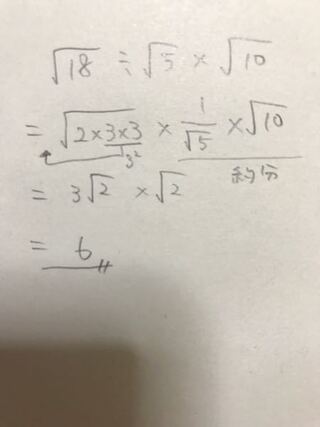 √18 ÷ √5 × √10
= √2×3×3 × 1/√5 × √10
3² 約分
= 3√2 × √2
= 6